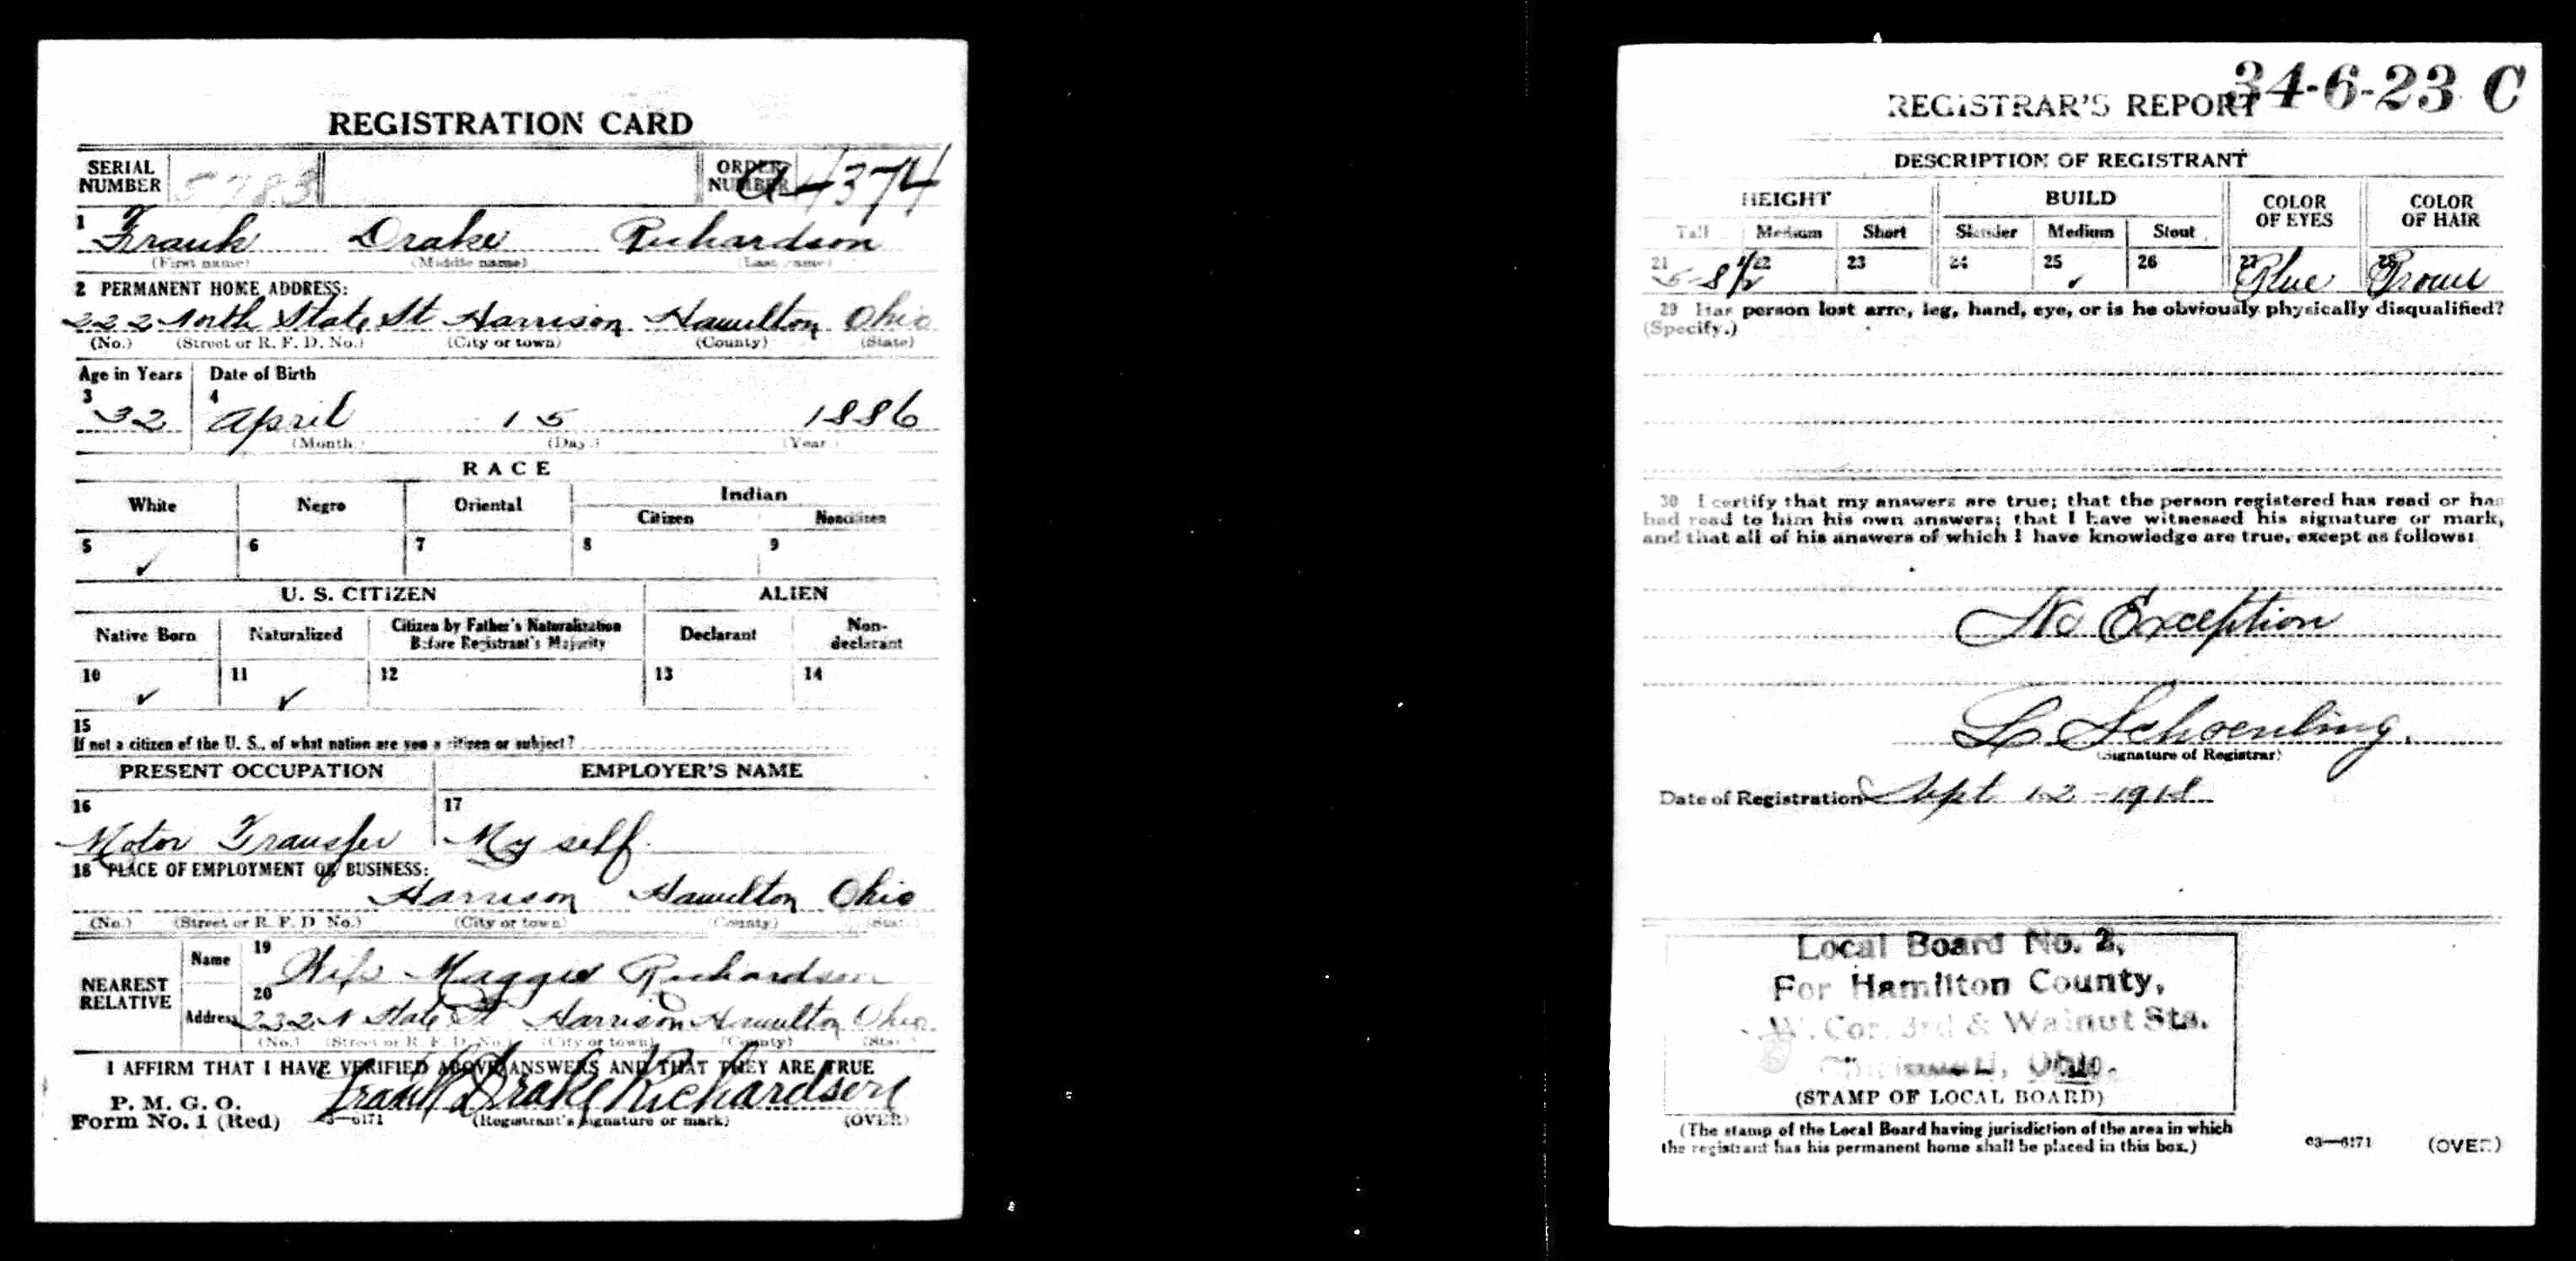 REGISTRATION CARD
SERIAL NUMBER 5783 ORDER NUMBER A4374
1 Frank Drake Richardson
(First name) (Middle name) (Last name)
2 PERMANENT HOME ADDRESS:
222 North State St Harrison Hamilton Ohio
(No.) (Street or R. F. D. No.) (City or town) (County) (State)
Age in Years Date of Birth
3 4
32 April 15 1886
(Month.) (Day.) (Year.)
RACE
White Negro Oriental Indian
Citizen Noncitizen
5 ✓ 6 7 8 9
U. S. CITIZEN ALIEN
Native Born Naturalized Citizen by Father's Naturalization Before Registrant's Majority Declarant Non-declarant
10 ✓ 11 ✓ 12 13 14
15
If not a citizen of the U. S., of what nation are you a citizen or subject?
PRESENT OCCUPATION EMPLOYER'S NAME
16 17
Motor Transfer My self.
18 PLACE OF EMPLOYMENT OR BUSINESS:
Harrison Hamilton Ohio
(No.) (Street or R. F. D. No.) (City or town) (County) (State)
NEAREST RELATIVE
Name 19 Wife Maggie Richardson
Address 20 232 N State St Harrison Hamilton Ohio.
(No.) (Street or R. F. D. No.) (City or town) (County) (State)
I AFFIRM THAT I HAVE VERIFIED ABOVE ANSWERS AND THAT THEY ARE TRUE
P. M. G. O.
Form No. 1 (Red) Frank Drake Richardson
3—6171 (Registrant's signature or mark) (OVER)
34-6-23 C
REGISTRAR'S REPORT
DESCRIPTION OF REGISTRANT
HEIGHT BUILD COLOR OF EYES COLOR OF HAIR
Tall Medium Short Slender Medium Stout
21 22 23 24 25 26 27 28
5-8½ ✓ Blue Brown
29 Has person lost arm, leg, hand, eye, or is he obviously physically disqualified?
(Specify.)
30 I certify that my answers are true; that the person registered has read or has
had read to him his own answers; that I have witnessed his signature or mark,
and that all of his answers of which I have knowledge are true, except as follows:
No Exception
L. Schoenling.
(Signature of Registrar)
Date of Registration Sept 12-1918
Local Board No. 2,
For Hamilton County,
W. Cor. 3rd & Walnut Sts.
Cincinnati, Ohio.
(STAMP OF LOCAL BOARD)
(The stamp of the Local Board having jurisdiction of the area in which
the registrant has his permanent home shall be placed in this box.)
03—6171 (OVER)